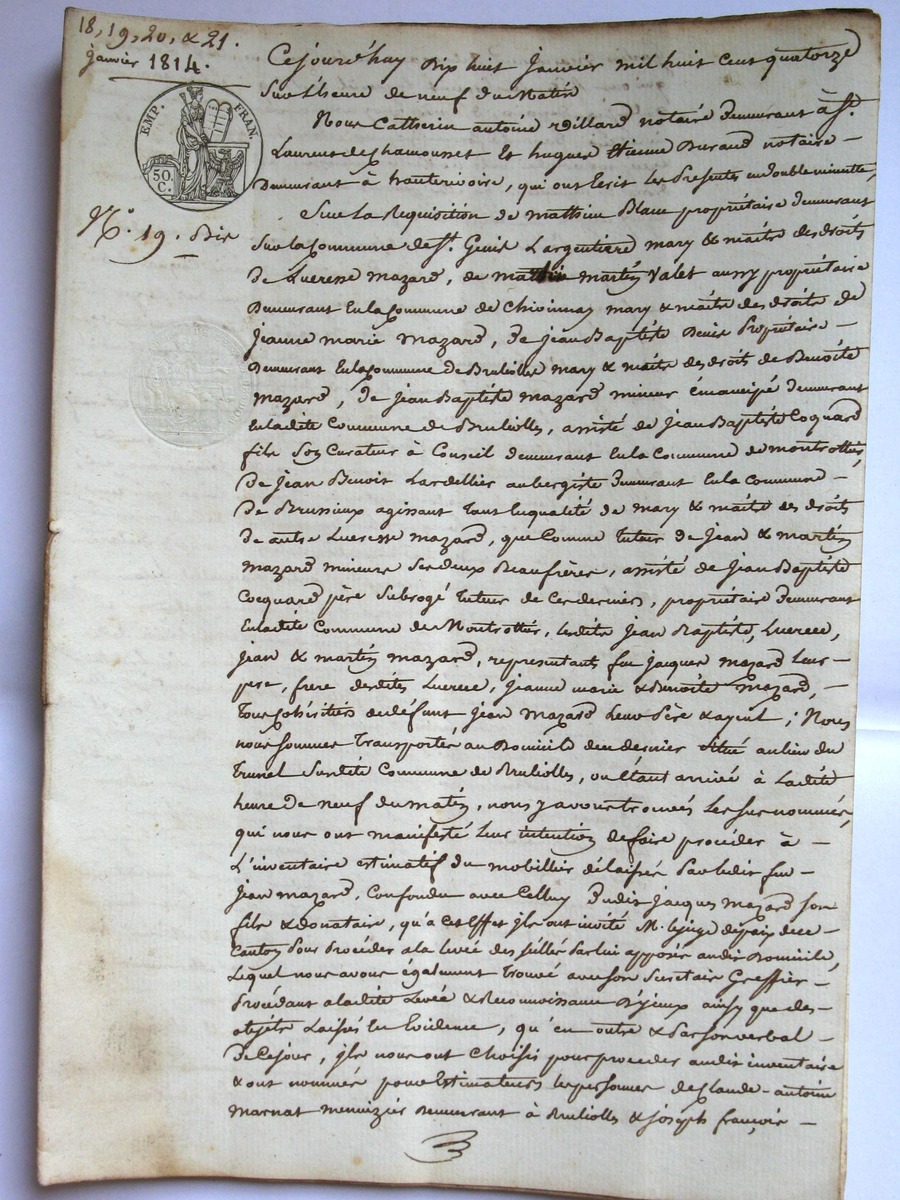 18, 19, 20, & 21.
janvier 1814.
EMP. FRAN.
50. C.
N.º 19. Bis
Cejourd'huy Dix huit Janvier mil huit cent quatorze
Sur l'heure de neuf du Matin
Nous Catherin antoine Villard notaire demeurant à St.
Laurent de Chamousset Et hugues Etienne Durand notaire –
Demeurant à hauterivoire, qui ont Ecrit les Presentes en double minutte,
Sur La Requisition de mathieu Blanc propriétaire demeurant
Sur la Commune de St. Genis L'argentiere mary & maitre des droits
De Lucresse mazard, de martin Valet aussy propriétaire
Demeurant En la Commune de mary & maitre des droits de
Jeanne marie mazard, De Jean Baptiste Denis Propriétaire –
Demeurant En la Commune de Bruliolles mary & maitre des droits de Benoite
Mazard, De Jean Baptiste Mazard mineur émancipé demeurant
En ladite Commune de Bruliolles, assisté de Jean Baptiste Coquard
fils Son Curateur à Conseil demeurant En la Commune de montrottier,
De Jean Benoit Lardellier aubergiste Demeurant En la Commune –
De Brussieux agissant Tant En qualité de mary & maitre des droits
De autre Lucresse mazard, que Comme tuteur de Jean & martin
mazard mineurs Ses deux Beaufrères, assisté de Jean Baptiste
Cocquard père Subrogé tuteur de Ces derniers, propriétaire Demeurant
En ladite Commune de Montrottier, lesdits Jean Baptiste, Lucrece,
Jean & martin mazard, representants feu Jacques mazard Leur –
pere, frere desdites Lucrece, Jeanne marie & Benoite mazard, –
Tous Cohéritiers du défunt Jean Mazard Leur Père & ayeul; Nous
nous sommes Transportés au Domicile de ce dernier situé au lieu du
Trunel Sur dite Commune de Brulliolles, ou Etant arrivés à Ladite
heure De neuf du matin, nous y avons trouvés Les sus nommés,
qui nous ont manifesté Leur intention de faire procéder à –
L'inventaire estimatif du mobillier délaissé Par ledit feu –
Jean mazard, Confondu avec Celluy Dudit Jacques mazard Son
fils & Donataire, qu'a Cet Effet ils ont invité Mr. le juge de paix de ce –
Canton Pour Procéder a la levée des scellés Par lui apposés audit Domicile,
Lequel nous avons également trouvé avec son Secrétaire Greffier –
Procédant a ladite Levée & Reconnoissance D'yceux ainsy que des –
objets Laissés En Evidence, qu'en outre & Par son verbal
De Ce jour, ils nous ont Choisis pour proceder audit inventaire
& ont nommés pour Estimateurs les personnes de Claude – antoine
Marnat Menuizier Demeurant à Brulliolles & Joseph françois –